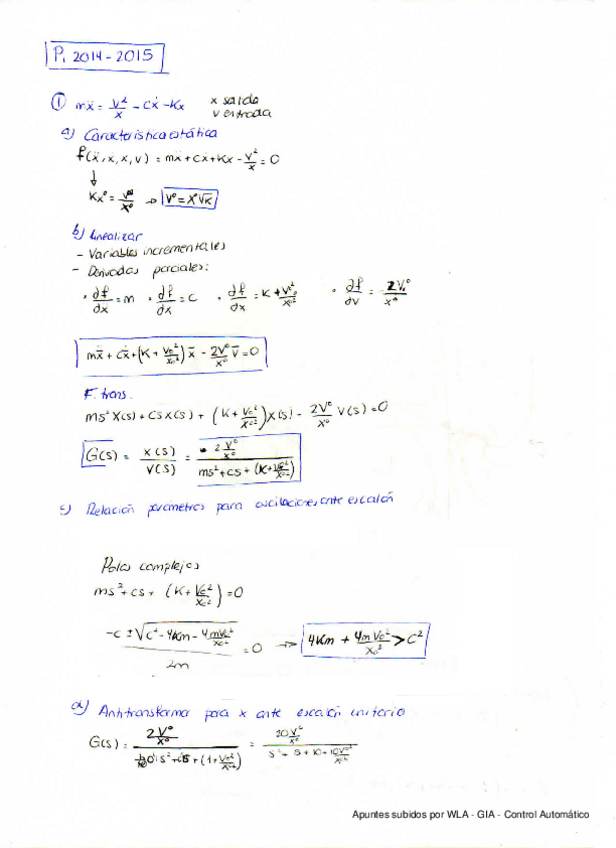 P. 2014-2015
① mẍ = V²/x - Cẋ - Kx    x salida
v entrada
a) Característica estática
f(ẍ, ẋ, x, v) = mẍ + cẋ + Kx - V²/x = 0
↓
Kx° = V°²/x° → V° = X°√K
b) Linealizar
- Variables incrementales
- Derivadas parciales:
· df/dẍ = m · df/dẋ = C · df/dx = K + V₀²/X₀² · df/dV = - 2V₀/x°
mẍ + cẋ + (K + V₀²/X₀²) x̄ - 2V°/x° V̄ = 0
F. trans.
ms² X(s) + CS X(s) + (K + V₀²/X₀²) X(s) - 2V°/X° V(s) = 0
G(s) = X(S)/V(S) = (2V°/x°)/(ms² + cs + (K + V₀²/X₀²))
c) Relación parámetros para oscilaciones, ante escalón
Polos complejos
ms² + cs + (K + V₀²/X₀²) = 0
(-c ± √(C² - 4Km - 4mV₀²/X₀²))/2m = 0 → 4Km + 4mV₀²/X₀² > C²
d) Antitransformar para x ante escalón unitario
G(s) = (2V°/X°)/(0'1S² + 0'1S + (1 + V₀²/X₀²)) = (20V°/X°)/(S² + S + 10 + 10V₀²/X₀²)
Apuntes subidos por WLA - GIA - Control Automático